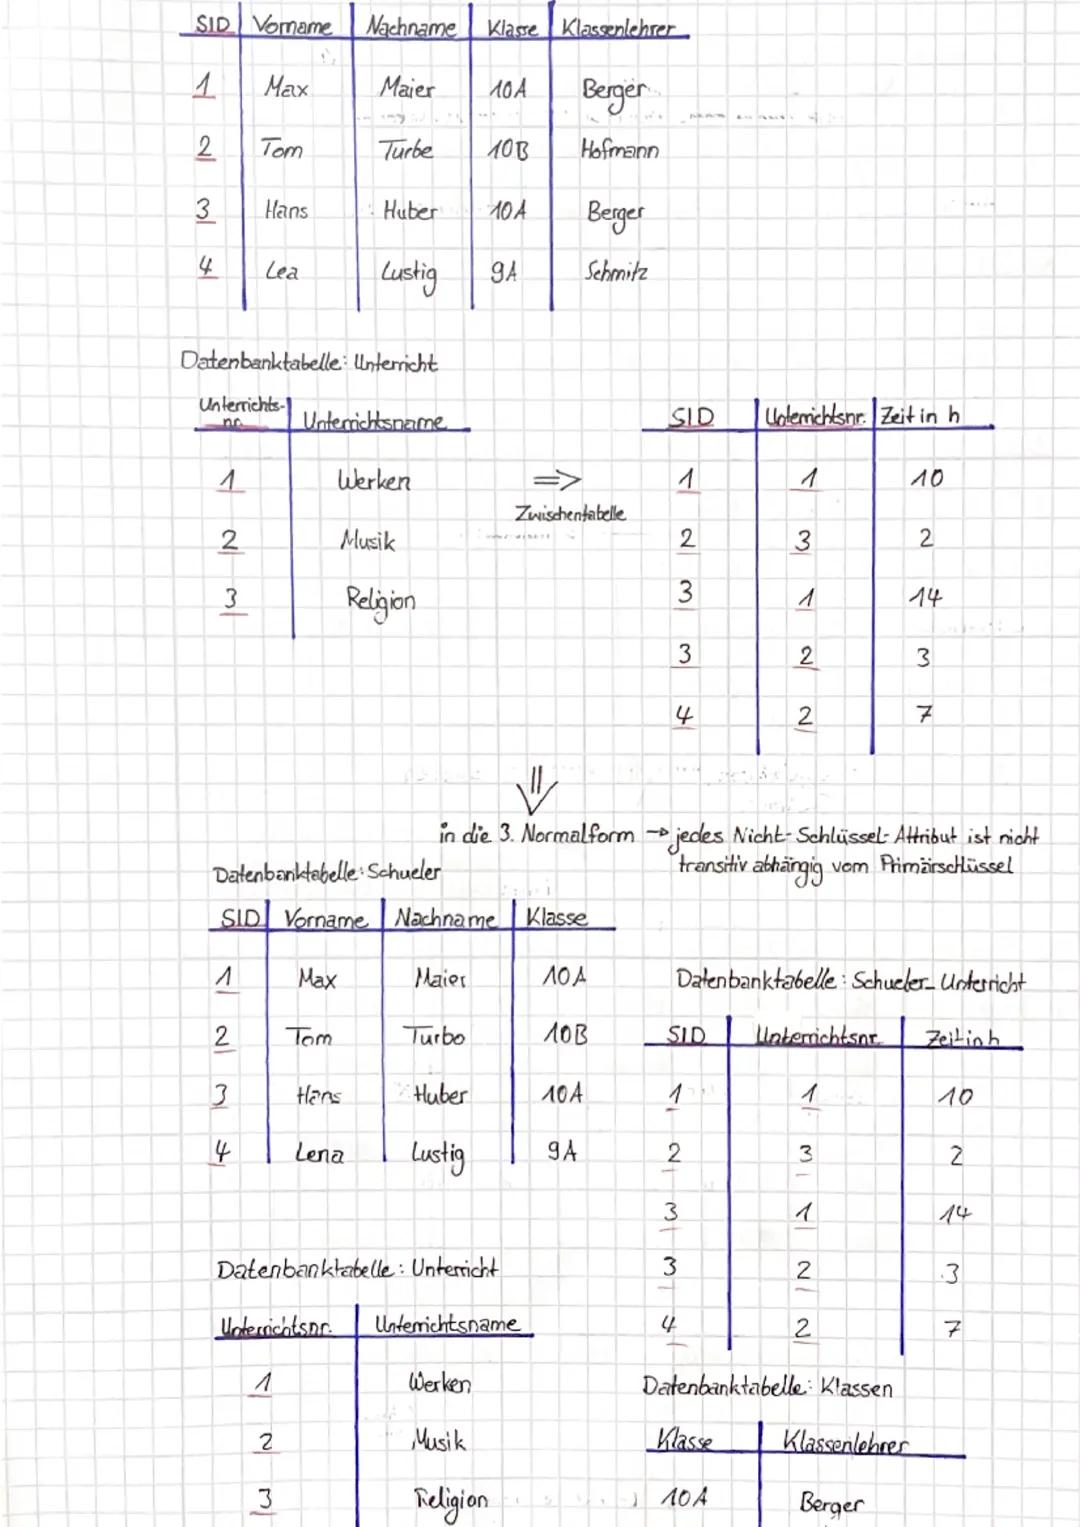 SID Vorname Nachname Klasse Klassenlehrer
1 Max Maier 10A Berger
2 Tom Turbe 10B Hofmann
3 Hans Huber 10A Berger
4 Lea Lustig 9A Schmitz
Datenbanktabelle: Unterricht
Unterrichts-
nr. Unterrichtsname
1 Werken
2 Musik
3 Religion
=>
Zwischentabelle
SID Unterrichtsnr. Zeit in h
1 1 10
2 3 2
3 1 14
3 2 3
4 2 7
in die 3. Normalform → jedes Nicht-Schlüssel-Attribut ist nicht
transitiv abhängig vom Primärschlüssel
Datenbanktabelle: Schueler
SID Vorname Nachname Klasse
1 Max Maier 10A
2 Tom Turbo 10B
3 Hans Huber 10A
4 Lena Lustig 9A
Datenbanktabelle: Schueler_Unterricht
SID Unterrichtsnr. Zeit in h
1 1 10
2 3 2
3 1 14
3 2 3
4 2 7
Datenbanktabelle: Unterricht
Unterrichtsnr. Unterrichtsname
1 Werken
2 Musik
3 Religion
Datenbanktabelle: Klassen
Klasse Klassenlehrer
10A Berger